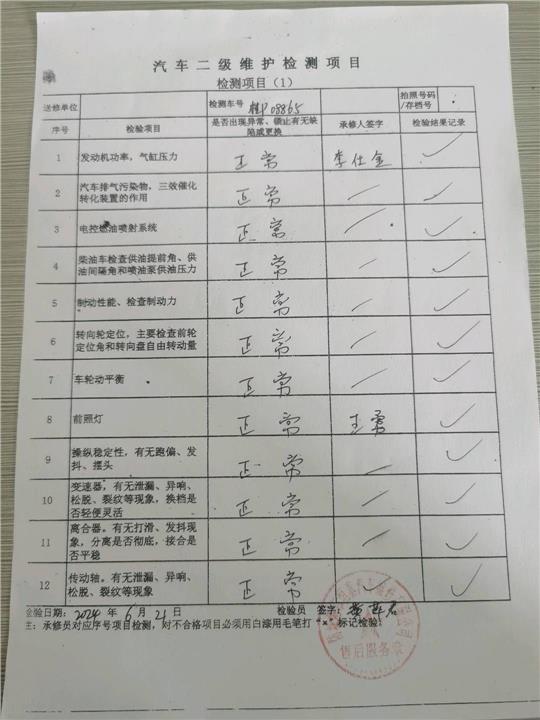 汽车二级维护检测项目
检测项目（1）
送修单位 检测车号 08865 拍照号码/存档号
序号 检验项目 是否出现异常、锁止有无缺陷或更换 承修人签字 检验结果记录
1 发动机功率，气缸压力 正常 李仕金 ✓
2 汽车排气污染物，三效催化转化装置的作用 正常 ✓
3 电控燃油喷射系统 正常 ✓
4 柴油车检查供油提前角、供油间隔角和喷油泵供油压力 正常 ✓
5 制动性能、检查制动力 正常 ✓
6 转向轮定位，主要检查前轮定位角和转向盘自由转动量 正常 ✓
7 车轮动平衡 正常 ✓
8 前照灯 正常 王勇 ✓
9 操纵稳定性，有无跑偏、发抖、摆头 正常 ✓
10 变速器，有无泄漏、异响、松脱、裂纹等现象，换档是否轻便灵活 正常 ✓
11 离合器。有无打滑、发抖现象，分离是否彻底，接合是否平稳 正常 ✓
12 传动轴。有无泄漏、异响、松脱、裂纹等现象 正常 ✓
佥验日期：2024 年 6 月 21 日 检验员 签字：
主：承修员对应序号项目检测，对不合格项目必须用白漆用毛笔打“×”标记检验。
售后服务章